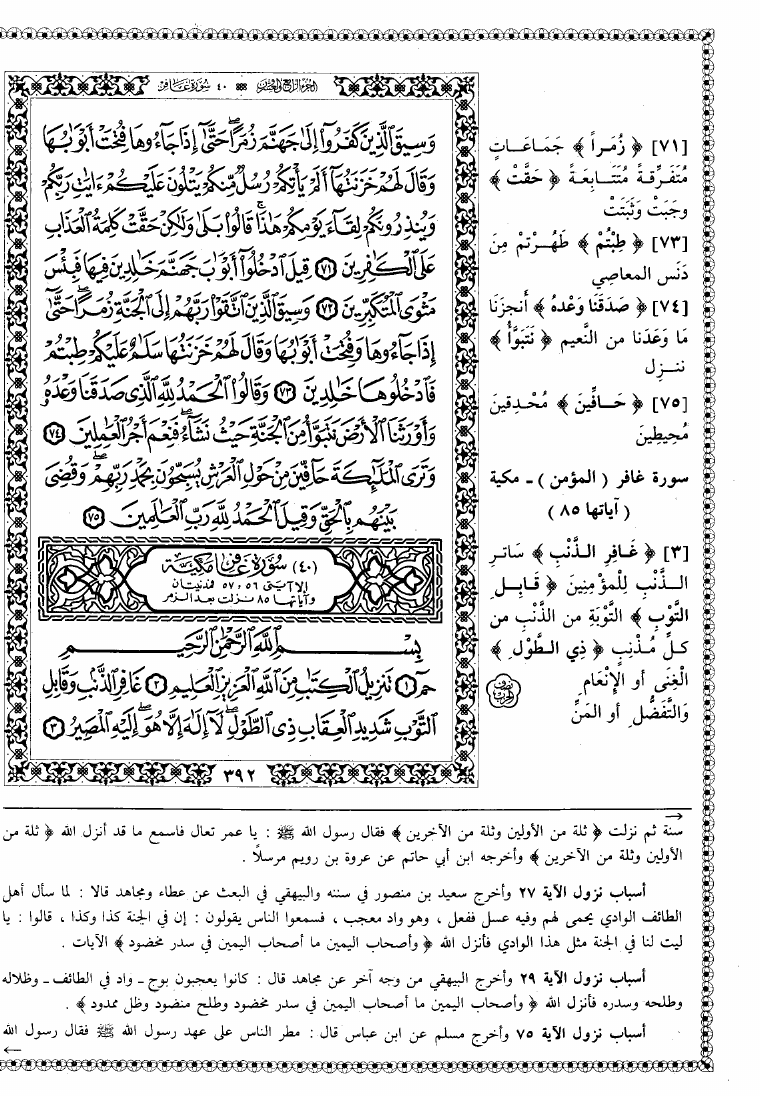 الجزء الرابع والعشرون ٤٠ سورة غافر
وَسِيقَ ٱلَّذِينَ كَفَرُوٓا۟ إِلَىٰ جَهَنَّمَ زُمَرًا ۖ حَتَّىٰٓ إِذَا جَآءُوهَا فُتِحَتْ أَبْوَٰبُهَا
وَقَالَ لَهُمْ خَزَنَتُهَآ أَلَمْ يَأْتِكُمْ رُسُلٌ مِّنكُمْ يَتْلُونَ عَلَيْكُمْ ءَايَٰتِ رَبِّكُمْ
وَيُنذِرُونَكُمْ لِقَآءَ يَوْمِكُمْ هَٰذَا ۚ قَالُوا۟ بَلَىٰ وَلَٰكِنْ حَقَّتْ كَلِمَةُ ٱلْعَذَابِ
عَلَى ٱلْكَٰفِرِينَ ﴿٧١﴾ قِيلَ ٱدْخُلُوٓا۟ أَبْوَٰبَ جَهَنَّمَ خَٰلِدِينَ فِيهَا ۖ فَبِئْسَ
مَثْوَى ٱلْمُتَكَبِّرِينَ ﴿٧٢﴾ وَسِيقَ ٱلَّذِينَ ٱتَّقَوْا۟ رَبَّهُمْ إِلَى ٱلْجَنَّةِ زُمَرًا ۖ حَتَّىٰٓ
إِذَا جَآءُوهَا وَفُتِحَتْ أَبْوَٰبُهَا وَقَالَ لَهُمْ خَزَنَتُهَا سَلَٰمٌ عَلَيْكُمْ طِبْتُمْ
فَٱدْخُلُوهَا خَٰلِدِينَ ﴿٧٣﴾ وَقَالُوا۟ ٱلْحَمْدُ لِلَّهِ ٱلَّذِى صَدَقَنَا وَعْدَهُۥ
وَأَوْرَثَنَا ٱلْأَرْضَ نَتَبَوَّأُ مِنَ ٱلْجَنَّةِ حَيْثُ نَشَآءُ ۖ فَنِعْمَ أَجْرُ ٱلْعَٰمِلِينَ ﴿٧٤﴾
وَتَرَى ٱلْمَلَٰٓئِكَةَ حَآفِّينَ مِنْ حَوْلِ ٱلْعَرْشِ يُسَبِّحُونَ بِحَمْدِ رَبِّهِمْ ۖ وَقُضِىَ
بَيْنَهُم بِٱلْحَقِّ وَقِيلَ ٱلْحَمْدُ لِلَّهِ رَبِّ ٱلْعَٰلَمِينَ ﴿٧٥﴾
(٤٠) سورة غافر مكية
إلا آيتى ٥٦، ٥٧ فمدنيتان
وآياتها ٨٥ نزلت بعد الزمر
بِسْمِ ٱللَّهِ ٱلرَّحْمَٰنِ ٱلرَّحِيمِ
حمٓ ﴿١﴾ تَنزِيلُ ٱلْكِتَٰبِ مِنَ ٱللَّهِ ٱلْعَزِيزِ ٱلْعَلِيمِ ﴿٢﴾ غَافِرِ ٱلذَّنۢبِ وَقَابِلِ
ٱلتَّوْبِ شَدِيدِ ٱلْعِقَابِ ذِى ٱلطَّوْلِ ۖ لَآ إِلَٰهَ إِلَّا هُوَ ۖ إِلَيْهِ ٱلْمَصِيرُ ﴿٣﴾
٣٩٢
[٧١] ﴿ زُمَراً ﴾ جَمَاعَـاتٍ
مُتَفَرِّقـةً مُتَتَـابِعَـةً ﴿ حَقَّتْ ﴾
وجَبَتْ وَثَبَتَتْ
[٧٣] ﴿ طِبْتُمْ ﴾ طَهُـرْتمْ مِنَ
دَنَسِ المعاصِي
[٧٤] ﴿ صَدَقَنَا وَعْدَهُ ﴾ أَنجزَنَا
مَا وَعَدَنا من النَّعيم ﴿ نَتَبَوَّأُ ﴾
ننـزل
[٧٥] ﴿ حَـافِّينَ ﴾ مُحْـدِقينَ
مُحِيطِينَ
سورة غافر ( المؤمن ) ـ مكية
( آياتها ٨٥ )
[٣] ﴿ غَـافِرِ الـذَّنْبِ ﴾ سَاتـرِ
الـذَّنْبِ لِلْمؤْمِنِينَ ﴿ قَـابِـلِ
التَّوْبِ ﴾ التَّوْبَةِ من الذَّنْبِ من
كـلِّ مُـذْنِبٍ ﴿ ذِي الـطَّوْلِ ﴾
الْغِنَى أو الإِنْعَامِ
وَالتَّفَضُّلِ أو المَنِّ
سنة ثم نزلت ﴿ ثلة من الأولين وثلة من الآخرين ﴾ فقال رسول الله ﷺ : يا عمر تعال فاسمع ما قد أنزل الله ﴿ ثلة من
الأولين وثلة من الآخرين ﴾ وأخرجه ابن أبي حاتم عن عروة بن رويم مرسلاً .
أسباب نزول الآية ٢٧ وأخرج سعيد بن منصور في سننه والبيهقي في البعث عن عطاء ومجاهد قالا : لما سأل أهل
الطائف الوادي يحمى لهم وفيه عسل ففعل ، وهو واد معجب ، فسمعوا الناس يقولون : إن في الجنة كذا وكذا ، قالوا : يا
ليت لنا في الجنة مثل هذا الوادي فأنزل الله ﴿ وأصحاب اليمين ما أصحاب اليمين في سدر مخضود ﴾ الآيات .
أسباب نزول الآية ٢٩ وأخرج البيهقي من وجه آخر عن مجاهد قال : كانوا يعجبون بوج ـ واد في الطائف ـ وظلاله
وطلحه وسدره فأنزل الله ﴿ وأصحاب اليمين ما أصحاب اليمين في سدر مخضود وطلح منضود وظل ممدود ﴾ .
أسباب نزول الآية ٧٥ وأخرج مسلم عن ابن عباس قال : مطر الناس على عهد رسول الله ﷺ فقال رسول الله